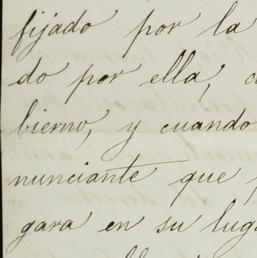 fijado por la
do por ella,
bierno, y cuando
nunciante que
gara en su lug